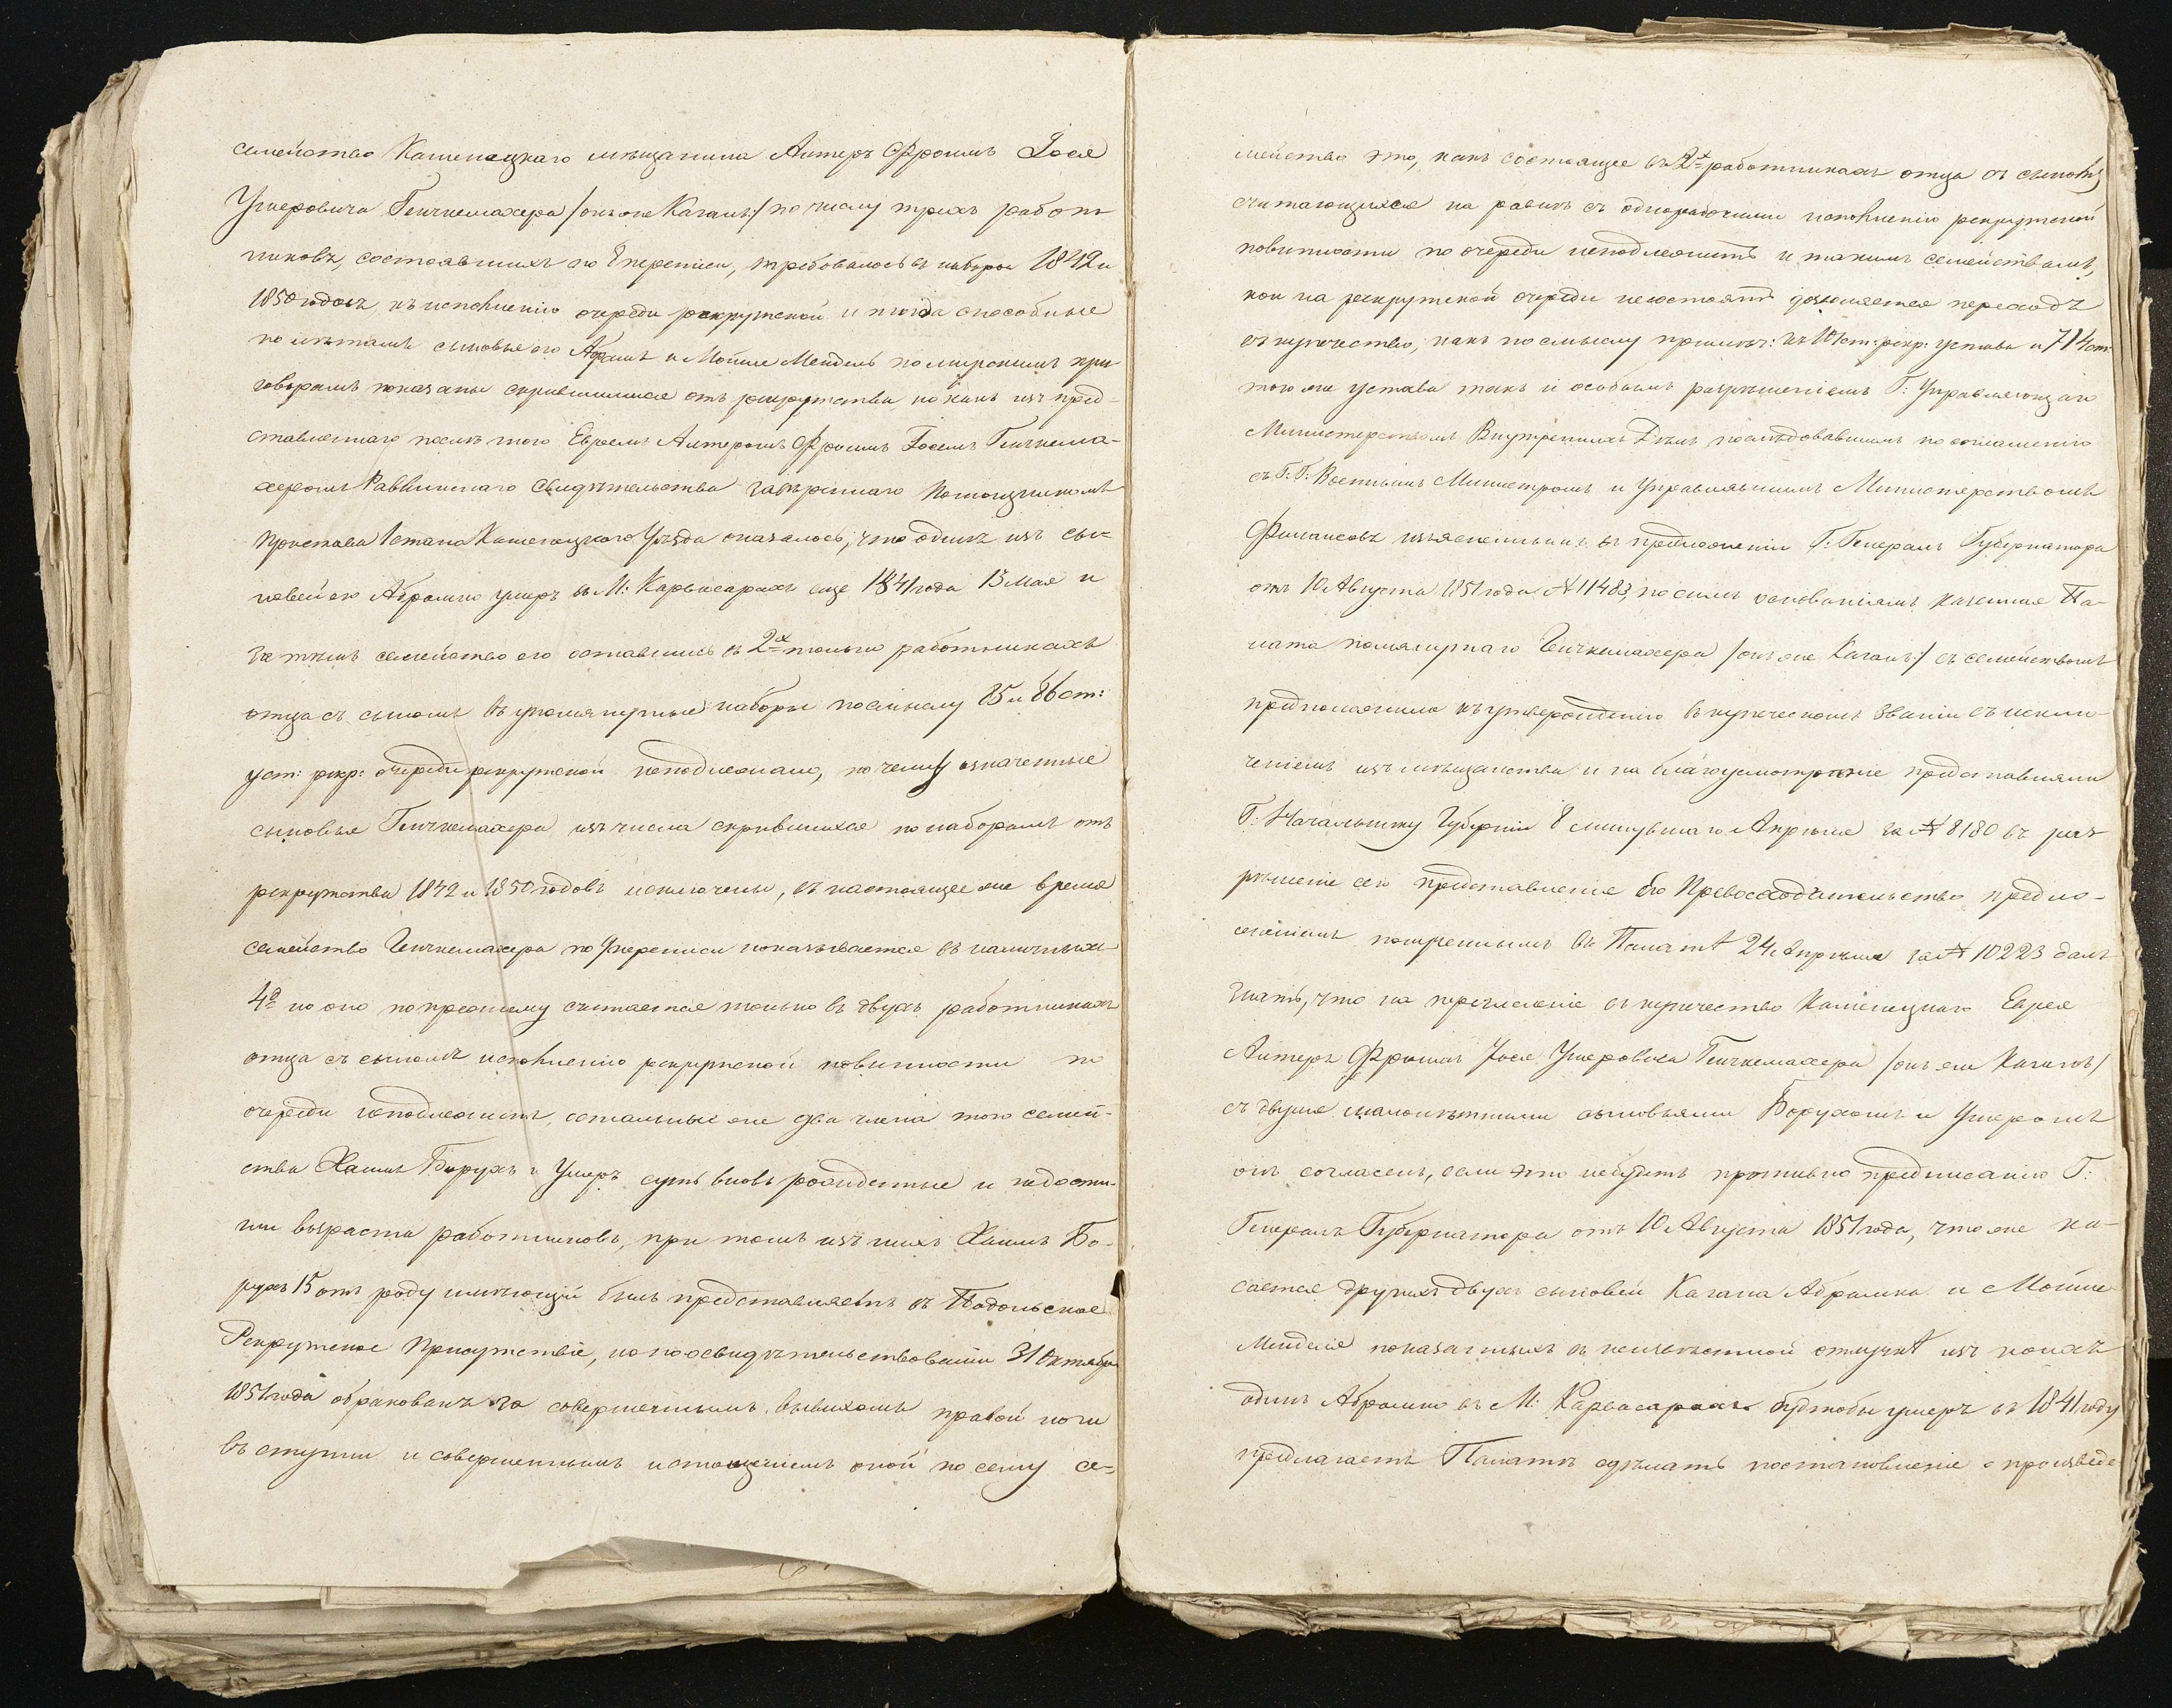 семейство Каменецкаго мѣщанина Антеръ Фроимъ Іося
Ушеровича Генчкемахера /онъ же Каганъ:/ по числу трехъ работ-
никовъ, состоявшихъ по 8 переписи, требовалось въ наборы 1842 и
1850 годовъ, къ исполненію очереди рекрутской и тогда способные
по лѣтамъ сыновья его Абрамъ и Мойше Мендель по мирскимъ при-
говорамъ показаны скрывшимися отъ рекрутства но какъ изъ пред-
ставленнаго послѣ того Евреемъ Антеромъ Фроимъ Іосемъ Генчкема-
херомъ Раввинскаго Свидѣтельства завѣреннаго Помощникомъ
Пристава 1 стана Каменецкаго Уѣзда оказалось, что одинъ изъ сы-
новей его Абрамко умеръ въ М: Карвасарахъ еще 1841 года 15 Мая и
за тѣмъ семейство его оставшись въ 2х только работникахъ
отца съ сыномъ въ упомянутые наборы по смыслу 85 и 86 ст:
уст: рекр: очереди рекрутской неподлежало, по чему означенные
сыновья Генчкемахера изъ числа скрывшихся по наборамъ отъ
рекрутства 1842 и 1850 годовъ исключены, въ настоящее же время
семейство Генчкемахера по 9 переписи показывается въ наличныхъ
4 но оно попрежнему считается только въ двухъ работникахъ
отца съ сыномъ исполненію рекрутской повинности по
очереди неподлежитъ, остальные же два члена того семей-
ства Хаимъ Борухъ и Ушеръ суть вновь рожденные и недостиг-
ши возраста работниковъ, при томъ изъ нихъ Хаимъ Бо-
рухъ 15 отъ роду имѣющій былъ представляемъ въ Подольское
Рекрутское Присутствіе, но по освидѣтельствованіи 31 Октября
1851 года обракованъ за совершеннымъ вывихомъ правой ноги
въ ступни и совершеннымъ истощеніемъ оной по сему се-
мейство это, какъ состоящее въ 2х работникахъ отца съ сыномъ
считающихся на равнѣ съ одноработными исполненію рекрутской
повинности по очереди неподлежитъ и такимъ семействамъ,
кои на рекрутской очереди несостоятъ дозволяется переходъ
въ купечество, какъ по смыслу примѣч: къ 10 ст: рекр: устава и 714 ст:
того же устава такъ и особымъ разрѣшеніемъ Г: Управляющаго
Министерствомъ Внутренихъ Дѣлъ, послѣдовавшимъ по соглашенію
съ Г.Г: Военнымъ Министромъ и Управлявшимъ Министерствомъ
Финансовъ изъясненнымъ въ предложеніи Г: Генералъ Губернатора
отъ 10 Августа 1851 года № 11483, по симъ основаніямъ казенная Па-
лата помянутаго Генчкемахера /онъ же Каганъ:/ съ семействомъ
предположила къ утвержденію въ купеческомъ званіи съ исклю-
ченіемъ изъ мѣщанства и на благоусмотреніе представляла
Г: Начальнику Губерніи 8 минувшаго Апрѣля за № 8180 въ раз-
рѣшеніе сего представленія Его Превосходительство предло-
женіемъ полученнымъ въ Палатѣ 24 Апрѣля за № 10223 далъ
знать, что на перечисленіе въ купечество Каменецкаго Еврея
Антеръ Фроимъ Іося Ушеровича Генчкемахера /онъ же Каганъ/
съ двумя малолѣтними сыновьями Борухомъ и Ушеромъ
онъ согласенъ, если это небудетъ противно предписанію Г:
Генералъ Губернатора отъ 10 Августа 1851 года, что же ка-
сается другихъ двухъ сыновей Кагана Абрамка и Мойше
Менделя показанныхъ въ неизвѣстной отлучкѣ изъ коихъ
одинъ Абрамко въ М: Карвасарахъ будтобы умеръ въ 1841 году
предлагаетъ Палатѣ сдѣлать постановленіе о произведе-